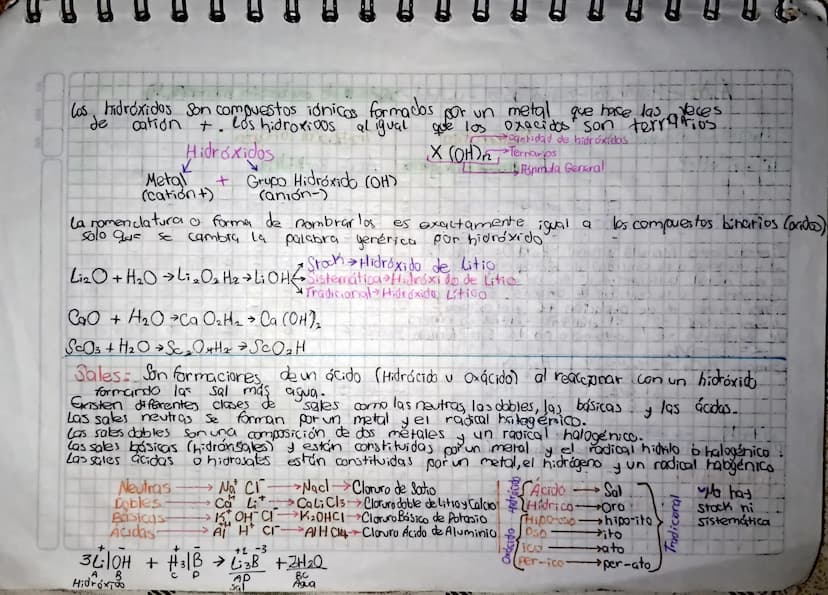 Los hidróxidos son compuestos iónicos formados por un metal que hace las veces
de catión +. Los hidroxidos al igual que los oxacidos son terciarios
Hidróxidos
Metal + Grupo Hidróxido (OH)
(catión+) (anión-)
X (OH)n
→cantidad de hidróxidos
→Ternarios
→Fórmula General
La nomenclatura o forma de nombrarlos es exactamente igual a los compuestos binarios (oxidos)
solo que se cambia la palabra generica por hidróxido
Li2O + H2O → Li2O2H2 → LiOH
Stock → Hidróxido de Litio
Sistemática → Hidróxido de Litio
Tradicional → Hidróxido Lítico
CaO + H2O → CaO2H2 → Ca(OH)2
ScO3 + H2O → Sc2O4H2 → ScO2H
Sales: Son formaciones de un ácido (Hidrácido u Oxácido) al reaccionar con un hidróxido
formando las sal más agua.
Existen diferentes clases de sales como las neutras, las dobles, las básicas y las ácidas.
Las sales neutras se forman por un metal y el radical halogénico.
Las sales dobles son una composición de dos metales y un radical halogénico.
Las sales básicas (hidronsales) y están constituidas por un metal y el radical hidrilo o halogénico.
Las sales ácidas o hidrosales están constituidas por un metal, el hidrógeno y un radical halogénico
Neutras → Na+ Cl- → NaCl → Cloruro de Sodio
Dobles → Ca++ Li+ → CaLiCl3 → Cloruro doble de Litio y Calcio
Básicas → K+ OH- Cl- → K2OHCl → Cloruro Básico de Potasio
Ácidas → Al H+ Cl- → AlHCl4 → Cloruro Ácido de Aluminio
Hidrácido
Oxácido
Ácido → Sal
Hídrico → uro
Hipo-oso → hipo-ito
Oso → ito
Ico → ato
Per-ico → per-ato
Tradicional
No hay
stock ni
sistemática
3Li|OH + H3|B → Li3B + 3H2O
A B C D AD BC
Hidróxido Sal Agua